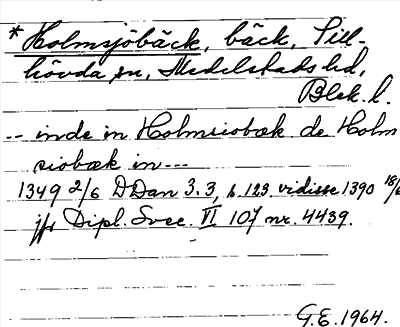 *Holmsjöbäck, bäck, Till-
hövda sn, Medelstads hd,
Blek. l.
-- inde in Holmsiobæk de Holm
siobæk in ---
1349 2/6 DDan 3.3, s. 123. vidisse 1390 18/6
jfr Dipl. Svec. VI 107 nr. 4439.
G.E. 1964.